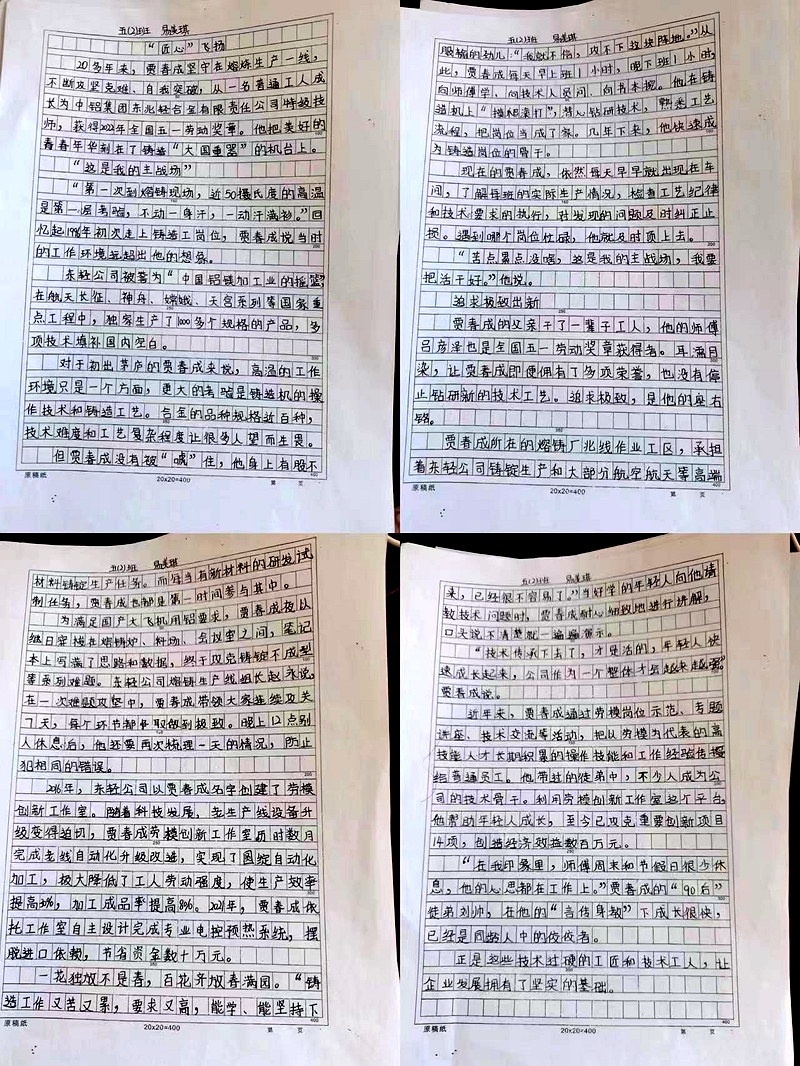 五(2)班 易美琪
“匠心”飞扬
20多年来，贾春成坚守在熔炼生产一线，
不断攻坚克难、自我突破，从一名普通工人成
长为中铝集团东北轻合金有限责任公司特级技
师，获得2022年全国五一劳动奖章。他把美好的
青春年华刻在了铸造“大国重器”的机台上。
“这是我的主战场”
“第一次到熔铸现场，近50摄氏度的高温
是第一层考验，不动一身汗，一动汗满衫。”回
忆起1996年初次走上铸造工岗位，贾春成说当时
的工作环境远超出他的想象。
东轻公司被誉为“中国铝镁加工业的摇篮”，
在航天长征、神舟、嫦娥、天宫系列等国家重
点工程中，独家生产了1000多个规格的产品，多
项技术填补国内空白。
对于初出茅庐的贾春成来说，高温的工作
环境只是一个方面，更大的考验是铸造机的操
作技术和铸造工艺。合金的品种规格近百种，
技术难度和工艺复杂程度让很多人望而生畏。
但贾春成没有被“唬”住，他身上有股不
原稿纸 20x20=400 第 页
五(2)班 易美琪
服输的劲儿：“我就不信，攻不下这块阵地。”从
此，贾春成每天早上班1小时，晚下班1小时，
向师傅学、向技术人员问、向书本挖。他在铸
造机上“摸爬滚打”，潜心钻研技术，熟悉工艺
流程，把岗位当成了家。几年下来，他快速成
为铸造岗位的骨干。
现在的贾春成，依然每天早早就出现在车
间，了解每班的实际生产情况，检查工艺纪律
和技术要求的执行，对发现的问题及时纠正止
损。遇到哪个岗位忙碌，他就及时顶上去。
“苦点累点没啥，这是我的主战场，我要
把活干好。”他说。
追求极致出新
贾春成的父亲干了一辈子工人，他的师傅
吕彦泽也是全国五一劳动奖章获得者。耳濡目
染，让贾春成即便拥有了多项荣誉，也没有停
止钻研新的技术工艺。追求极致，是他的座右
铭。
贾春成所在的熔铸厂北线作业工区，承担
着东轻公司铸锭生产和大部分航空航天等高端
原稿纸 20x20=400 第 页
五(2)班 易美琪
材料铸锭生产任务。而每当有新材料的研发试
制任务，贾春成也都是第一时间参与其中。
为满足国产大飞机用铝要求，贾春成夜以
继日穿梭在熔铸炉、料场、会议室之间，笔记
本上写满了思路和数据，终于攻克铸锭不成型
等系列难题。东轻公司熔铸生产线组长赵永说，
在一次难题攻坚中，贾春成带领大家连续攻关
7天，每个环节都争取做到极致。晚上12点别
人休息后，他还要再次梳理一天的情况，防止
犯相同的错误。
2016年，东轻公司以贾春成名字创建了劳模
创新工作室。随着科技发展，老生产线设备升
级变得迫切，贾春成劳模创新工作室历时数月
完成老线自动化升级改造，实现了圆锭自动化
加工，极大降低了工人劳动强度，使生产效率
提高30%，加工成品率提高8%。2021年，贾春成依
托工作室自主设计完成专业电控预热系统，摆
脱进口依赖，节省资金数十万元。
一花独放不是春，百花齐放春满园。“铸
造工作又苦又累，要求又高，能学、能坚持下
原稿纸 20x20=400 第 页
五(2)班 易美琪
来，已经很不容易了。”当好学的年轻人向他请
教技术问题时，贾春成耐心细致地进行讲解，
口头说不清楚就一遍遍演示。
“技术传承下去了，才是活的，年轻人快
速成长起来，公司作为一个整体才会越来越强”
贾春成说。
近年来，贾春成通过劳模岗位示范、专题
讲座、技术交流等活动，把以劳模为代表的高
技能人才长期积累的操作技能和工作经验传授
给普通员工。他带过的徒弟中，不少人成为公
司的技术骨干。利用劳模创新工作室这个平台，
他帮助年轻人成长，至今已攻克重要创新项目
14项，创造经济效益数百万元。
“在我印象里，师傅周末和节假日很少休
息，他的心思都在工作上。”贾春成的“90后”
徒弟刘帅，在他的“言传身教”下成长很快，
已经是同龄人中的佼佼者。
正是这些技术过硬的工匠和技术工人，让
企业发展拥有了坚实的基础。
原稿纸 20x20=400 第 页